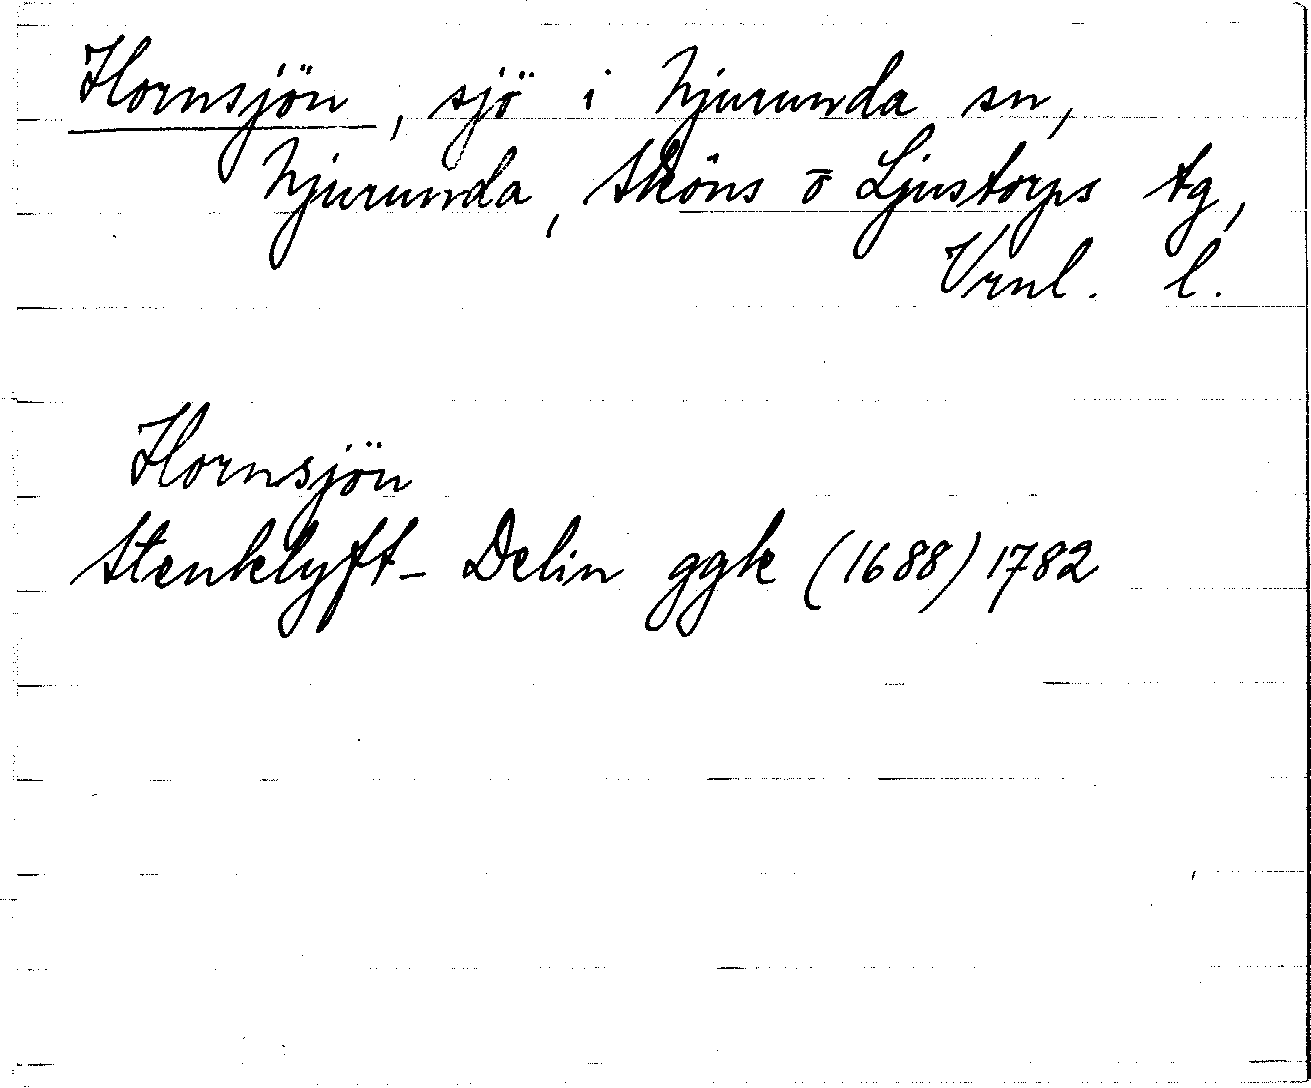 Hornsjön, sjö i Njurunda sn,
Njurunda, Sköns o Ljustorps tg,
Vrnl. l.
Hornsjön
Stenklyft- Delin ggk (1688) 1782